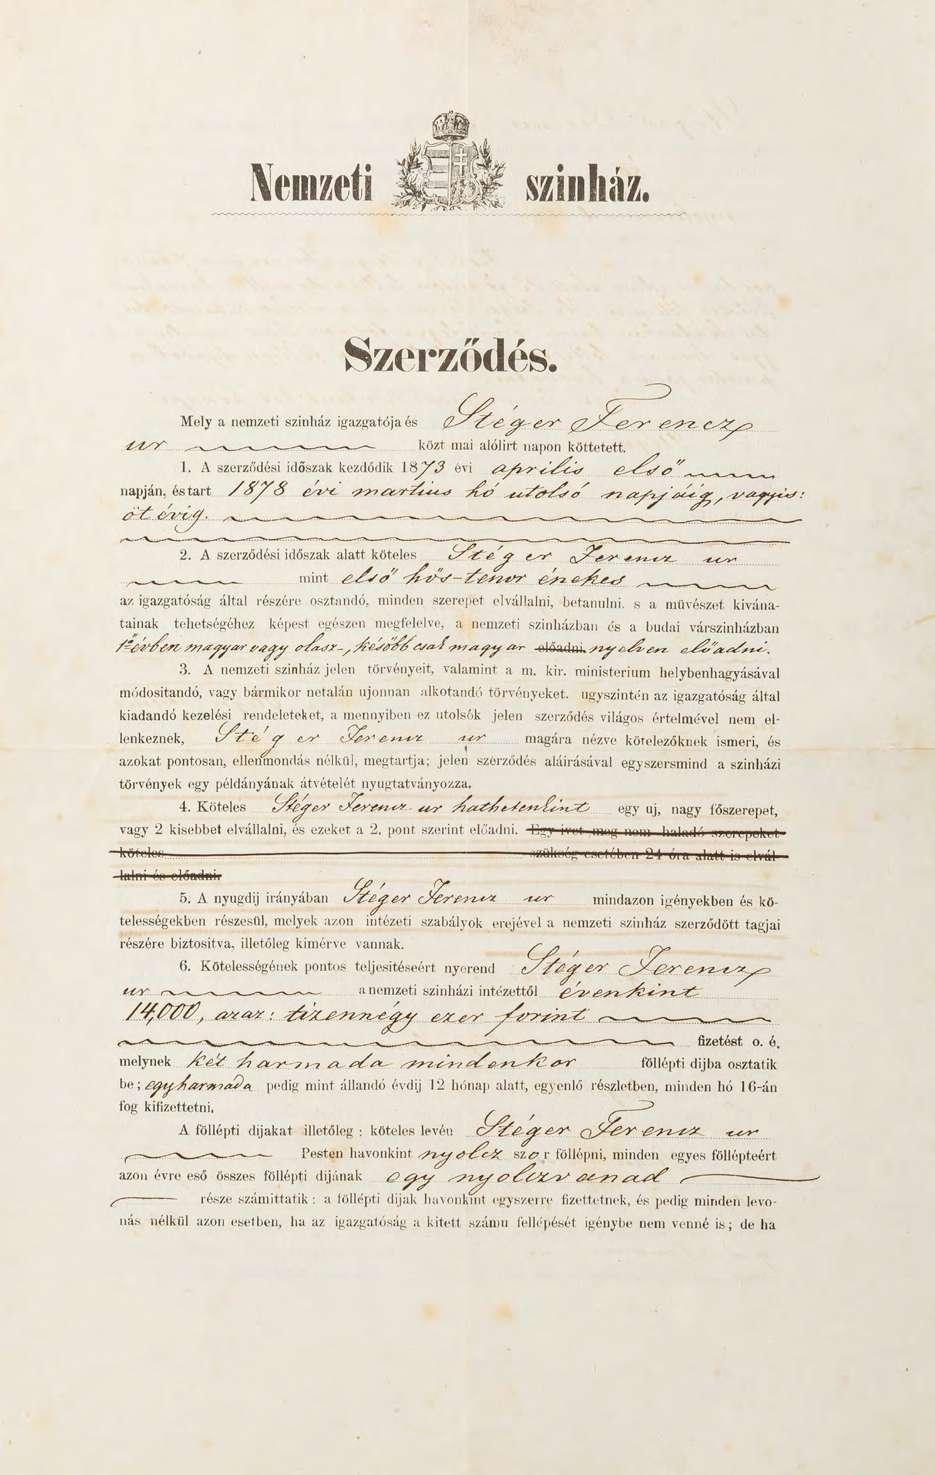 Nemzeti szinház.
Szerződés.
Mely a nemzeti szinház igazgatója és Stéger Ferencz
ur közt mai alólirt napon köttetett.
1. A szerződési időszak kezdődik 1873 évi april̀is első
napján, és tart 1878 évi martius hó utolsó napjáig, vagyis:
öt évig.
2. A szerződési időszak alatt köteles Stéger Ferencz ur
mint első hős-tenor énekes
az igazgatóság által részére osztandó, minden szerepet elvállalni, betanulni, s a művészet kivána-
tainak tehetségéhez képest egészen megfelelve, a nemzeti szinházban és a budai várszinházban
1ső évben magyar vagy olasz-, később csak magyar előadni. nyelven előadni.
3. A nemzeti szinház jelen törvényeit, valamint a m. kir. ministerium helybenhagyásával
módositandó, vagy bármikor netalán ujonnan alkotandó törvényeket, ugyszintén az igazgatóság által
kiadandó kezelési rendeleteket, a mennyiben ez utolsók jelen szerződés világos értelmével nem el-
lenkeznek, Stéger Ferencz ur magára nézve kötelezőknek ismeri, és
azokat pontosan, ellenmondás nélkül, megtartja; jelen szerződés aláirásával egyszersmind a szinházi
törvények egy példányának átvételét nyugtatványozza.
4. Köteles Stéger Ferencz ur hathetenkint egy uj, nagy főszerepet,
vagy 2 kisebbet elvállalni, és ezeket a 2. pont szerint előadni. Egy ivet meg nem haladó szerepeket
köteles szükség esetében 24 óra alatt is elvál-
lalni és előadni.
5. A nyugdij irányában Stéger Ferencz ur mindazon igényekben és kö-
telességekben részesül, melyek azon intézeti szabályok erejével a nemzeti szinház szerződött tagjai
részére biztositva, illetőleg kimérve vannak.
6. Kötelességének pontos teljesitéseért nyerend Stéger Ferencz
ur a nemzeti szinházi intézettől évenkint
14,000, azaz: tizennégy ezer forint
fizetést o. é.
melynek két harmada mindenkor föllépti dijba osztatik
be; egyharmada pedig mint állandó évdij 12 hónap alatt, egyenlő részletben, minden hó 16-án
fog kifizettetni.
A föllépti dijakat illetőleg: köteles levén Stéger Ferencz ur
Pesten havonkint nyolcz szor föllépni, minden egyes föllépteért
azon évre eső összes föllépti dijának egy nyolczvanad
része számittatik: a föllépti dijak havonkint egyszerre fizettetnek, és pedig minden levo-
nás nélkül azon esetben, ha az igazgatóság a kitett számu fellépését igénybe nem venné is; de ha